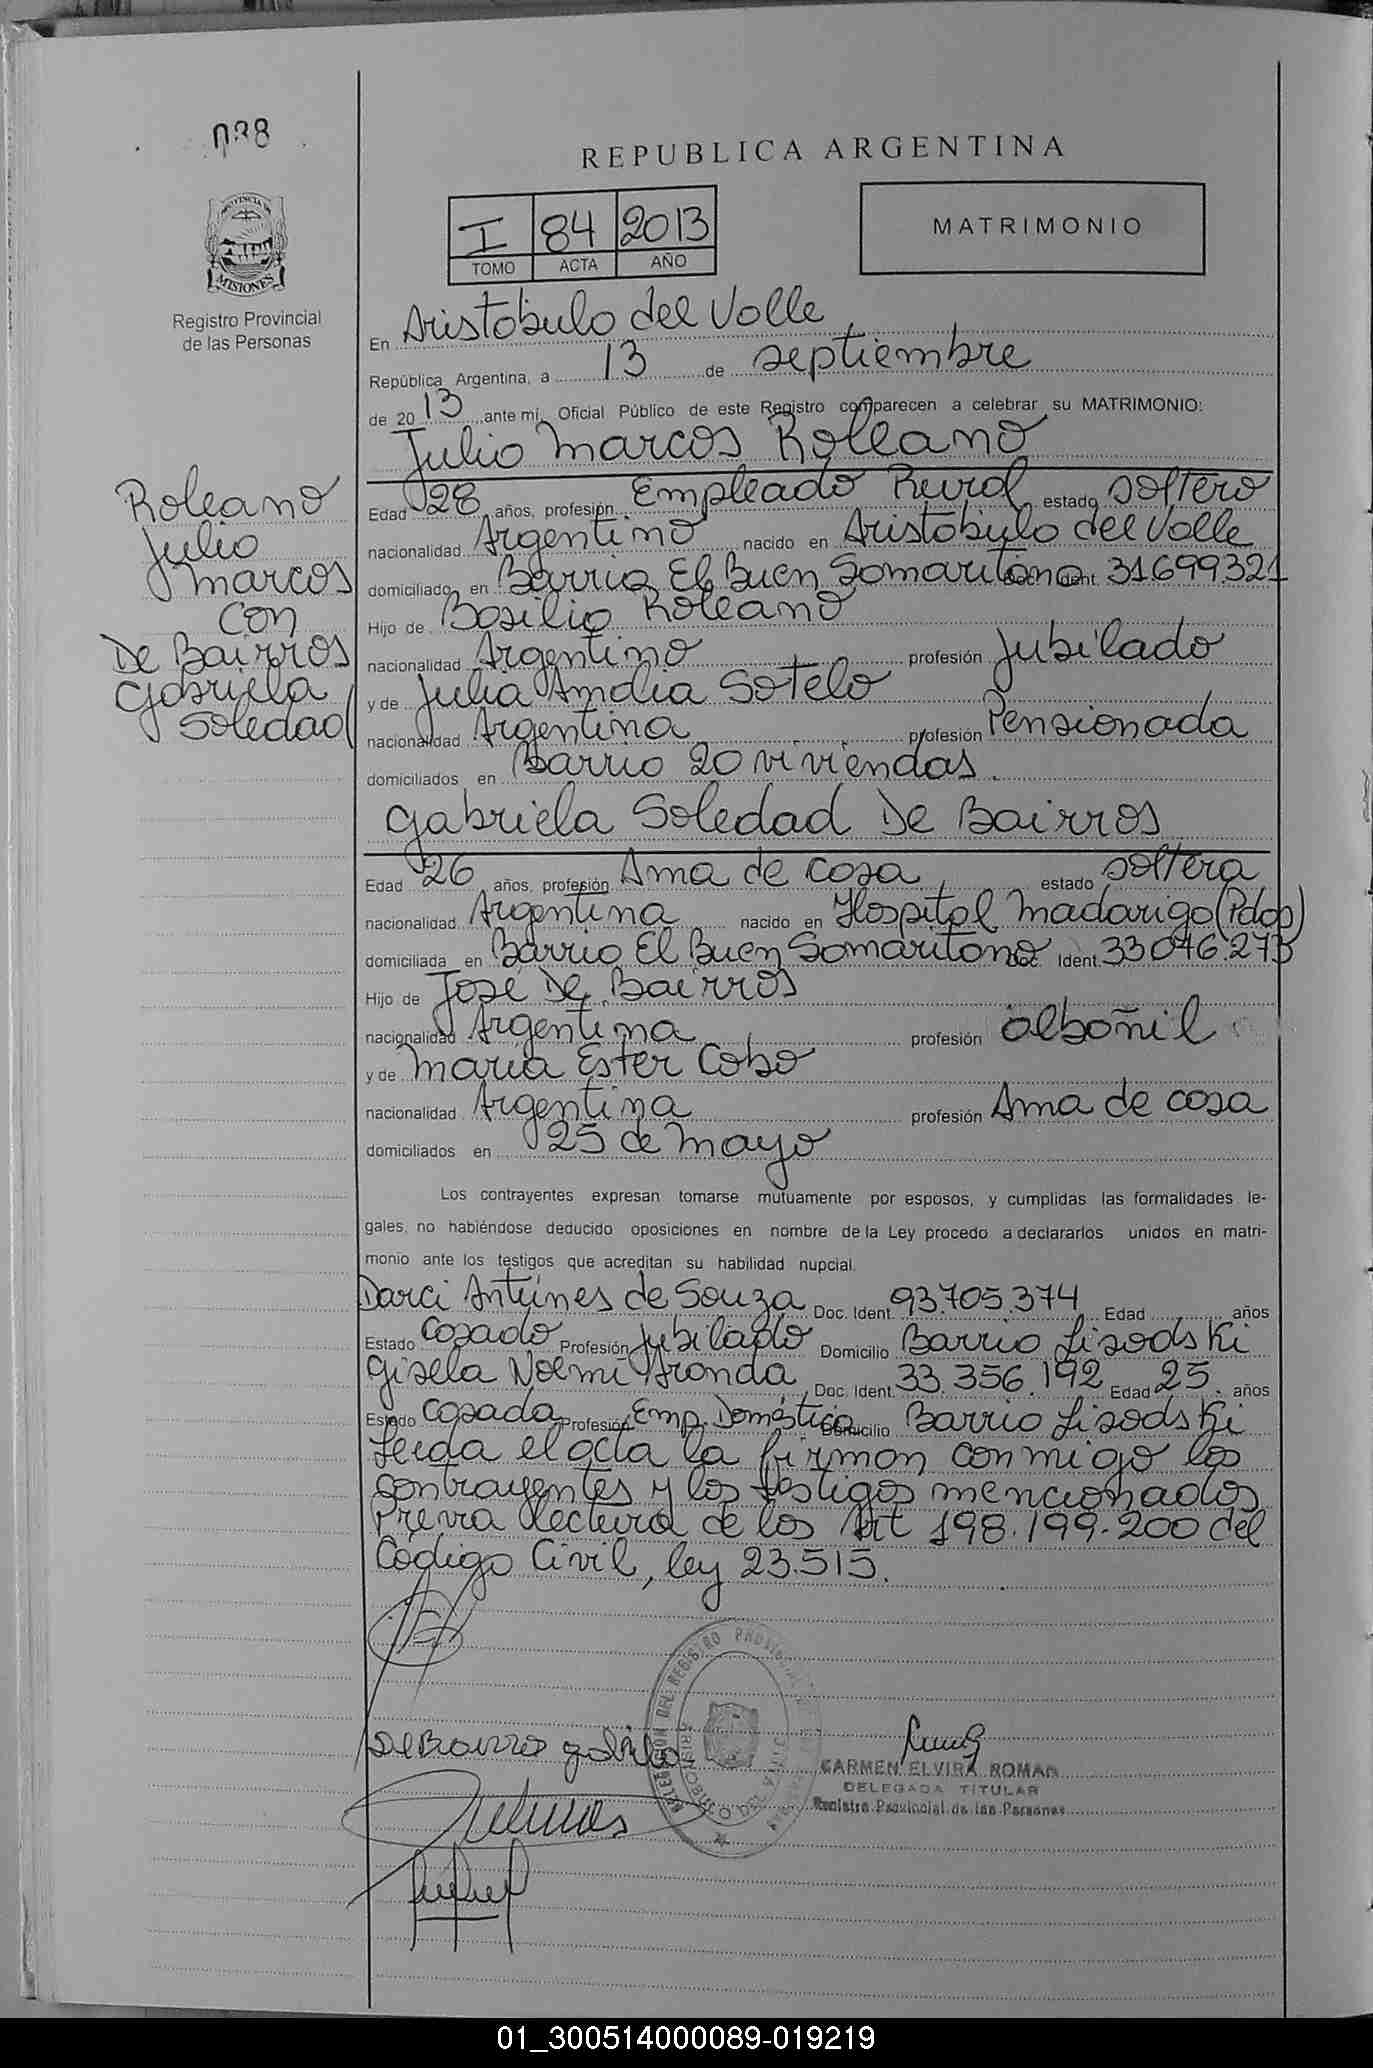 088
REPUBLICA ARGENTINA
I 84 2013
TOMO ACTA AÑO
MATRIMONIO
PROVINCIA DE
MISIONES
Registro Provincial
de las Personas
En Aristobulo del Valle
República Argentina, a 13 de septiembre
de 20 13 ante mí, Oficial Público de este Registro comparecen a celebrar su MATRIMONIO:
Julio Marcos Roleano
Roleano
Julio
Marcos
con
De Bairros
Gabriela
Soledad
Edad 28 años, profesión Empleado Rural estado soltero
nacionalidad Argentino nacido en Aristobulo del Valle
domiciliado en Barrio El Buen Samaritano Ident. 31699321
Hijo de Basilio Roleano
nacionalidad Argentino profesión Jubilado
y de Julia Amelia Sotelo
nacionalidad Argentina profesión Pensionada
domiciliados en Barrio 20 viviendas.
Gabriela Soledad De Bairros
Edad 26 años, profesión Ama de casa estado soltera
nacionalidad Argentina nacido en Hospital Madariaga (Pdas)
domiciliada en Barrio El Buen Samaritano Doc. Ident. 33.046.273
Hijo de Jose De Bairros
nacionalidad Argentina profesión albañil
y de María Ester Cobo
nacionalidad Argentina profesión Ama de casa
domiciliados en 25 de Mayo
Los contrayentes expresan tomarse mutuamente por esposos, y cumplidas las formalidades le-
gales, no habiéndose deducido oposiciones en nombre de la Ley procedo a declararlos unidos en matri-
monio ante los testigos que acreditan su habilidad nupcial.
Darci Antunes de Souza Doc. Ident. 93.705.374 Edad años
Estado Casado Profesión Jubilado Domicilio Barrio Lisodski
Gisela Noemí Aranda Doc. Ident. 33.356.192 Edad 25. años
Estado Casada Profesión Emp. Doméstica Domicilio Barrio Lisodski
Leida el acta la firman conmigo los
contrayentes y los testigos mencionados
Previa lectura de los Art 198.199.200 del
Código Civil, ley 23.515.
De Bairros Gabriela
CARMEN ELVIRA ROMAN
DELEGADA TITULAR
Registro Provincial de las Personas
DELEGACION DEL REGISTRO PROVINCIAL DE LAS PERSONAS
ARISTOBULO DEL VALLE
01_300514000089-019219